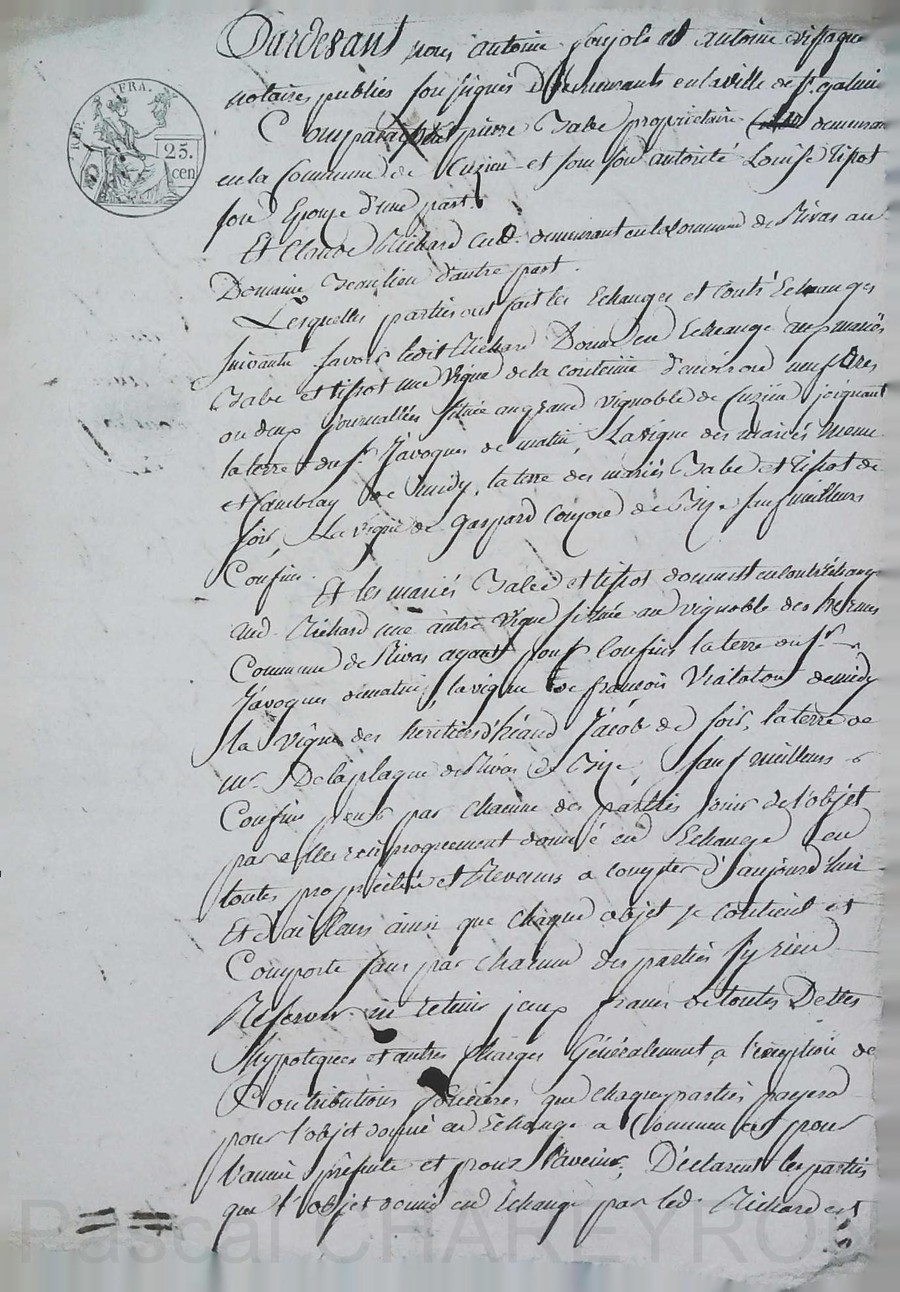 REP. FRA.
25.
cen
Pardevant nous antoine Soujole et antoine vissague
notaires publics soussignés Demeurants en la ville de St. galmier
Comparaissent pierre Babe proprietaire demeurant
en la Commune de Cuzieu et sous son autorité Louise tissot
son Epouse d'une part.
Et Claude Richard cult. demeurant en la Commune de Rivas au
Domaine Beaulieu d'autre part.
Lesquelles parties ont fait les Echanges et Contr'Echanges
suivants savoir ledit Richard Donne en Echange aux mariés
Babe et tissot une vigne de la contenue d'environ neuf ares
ou deux journallées située au grand vignoble de Cuzieu joignant
la terre du Sr. Javogues de matin, La vigne des mariés
et de midy, la terre des mariés Babe et tissot de
soir, La vigne de Gaspard de Bize sauf meilleurs
Confins.
Et les mariés Babe et tissot donnent en contr'échange
aud. Richard une autre vigne située au vignoble des
Commune de Rivas ayant pour Confins la terre du Sr.
Javogues de matin, la vigne de francois Viallaton de midy
la vigne des heritiers d'héaud Jacob de soir, la terre de
mr. Delaplagne de Rivas de Bize, Sauf meilleurs
Confins pour par chacune des parties jouir de l'objet
par elles reciproquement donné en Echange en
toutes proprietés et Revenus a compter d'aujourd'hui
Et d'ailleurs ainsi que chaque objet se contient et
Comporte sans par chacune des parties s'y rien
Reserver ni retenir jceux francs de toutes Dettes
hypoteques et autres charges Généralement, a l'exception de
Contributions foncieres que chaque parties payera
pour l'objet donné en Echange a Commencer pour
l'année présente et pour l'avenir, Déclarent les parties
que l'objet donné en Echange par led. Richard est
Pascal CHAREYRON